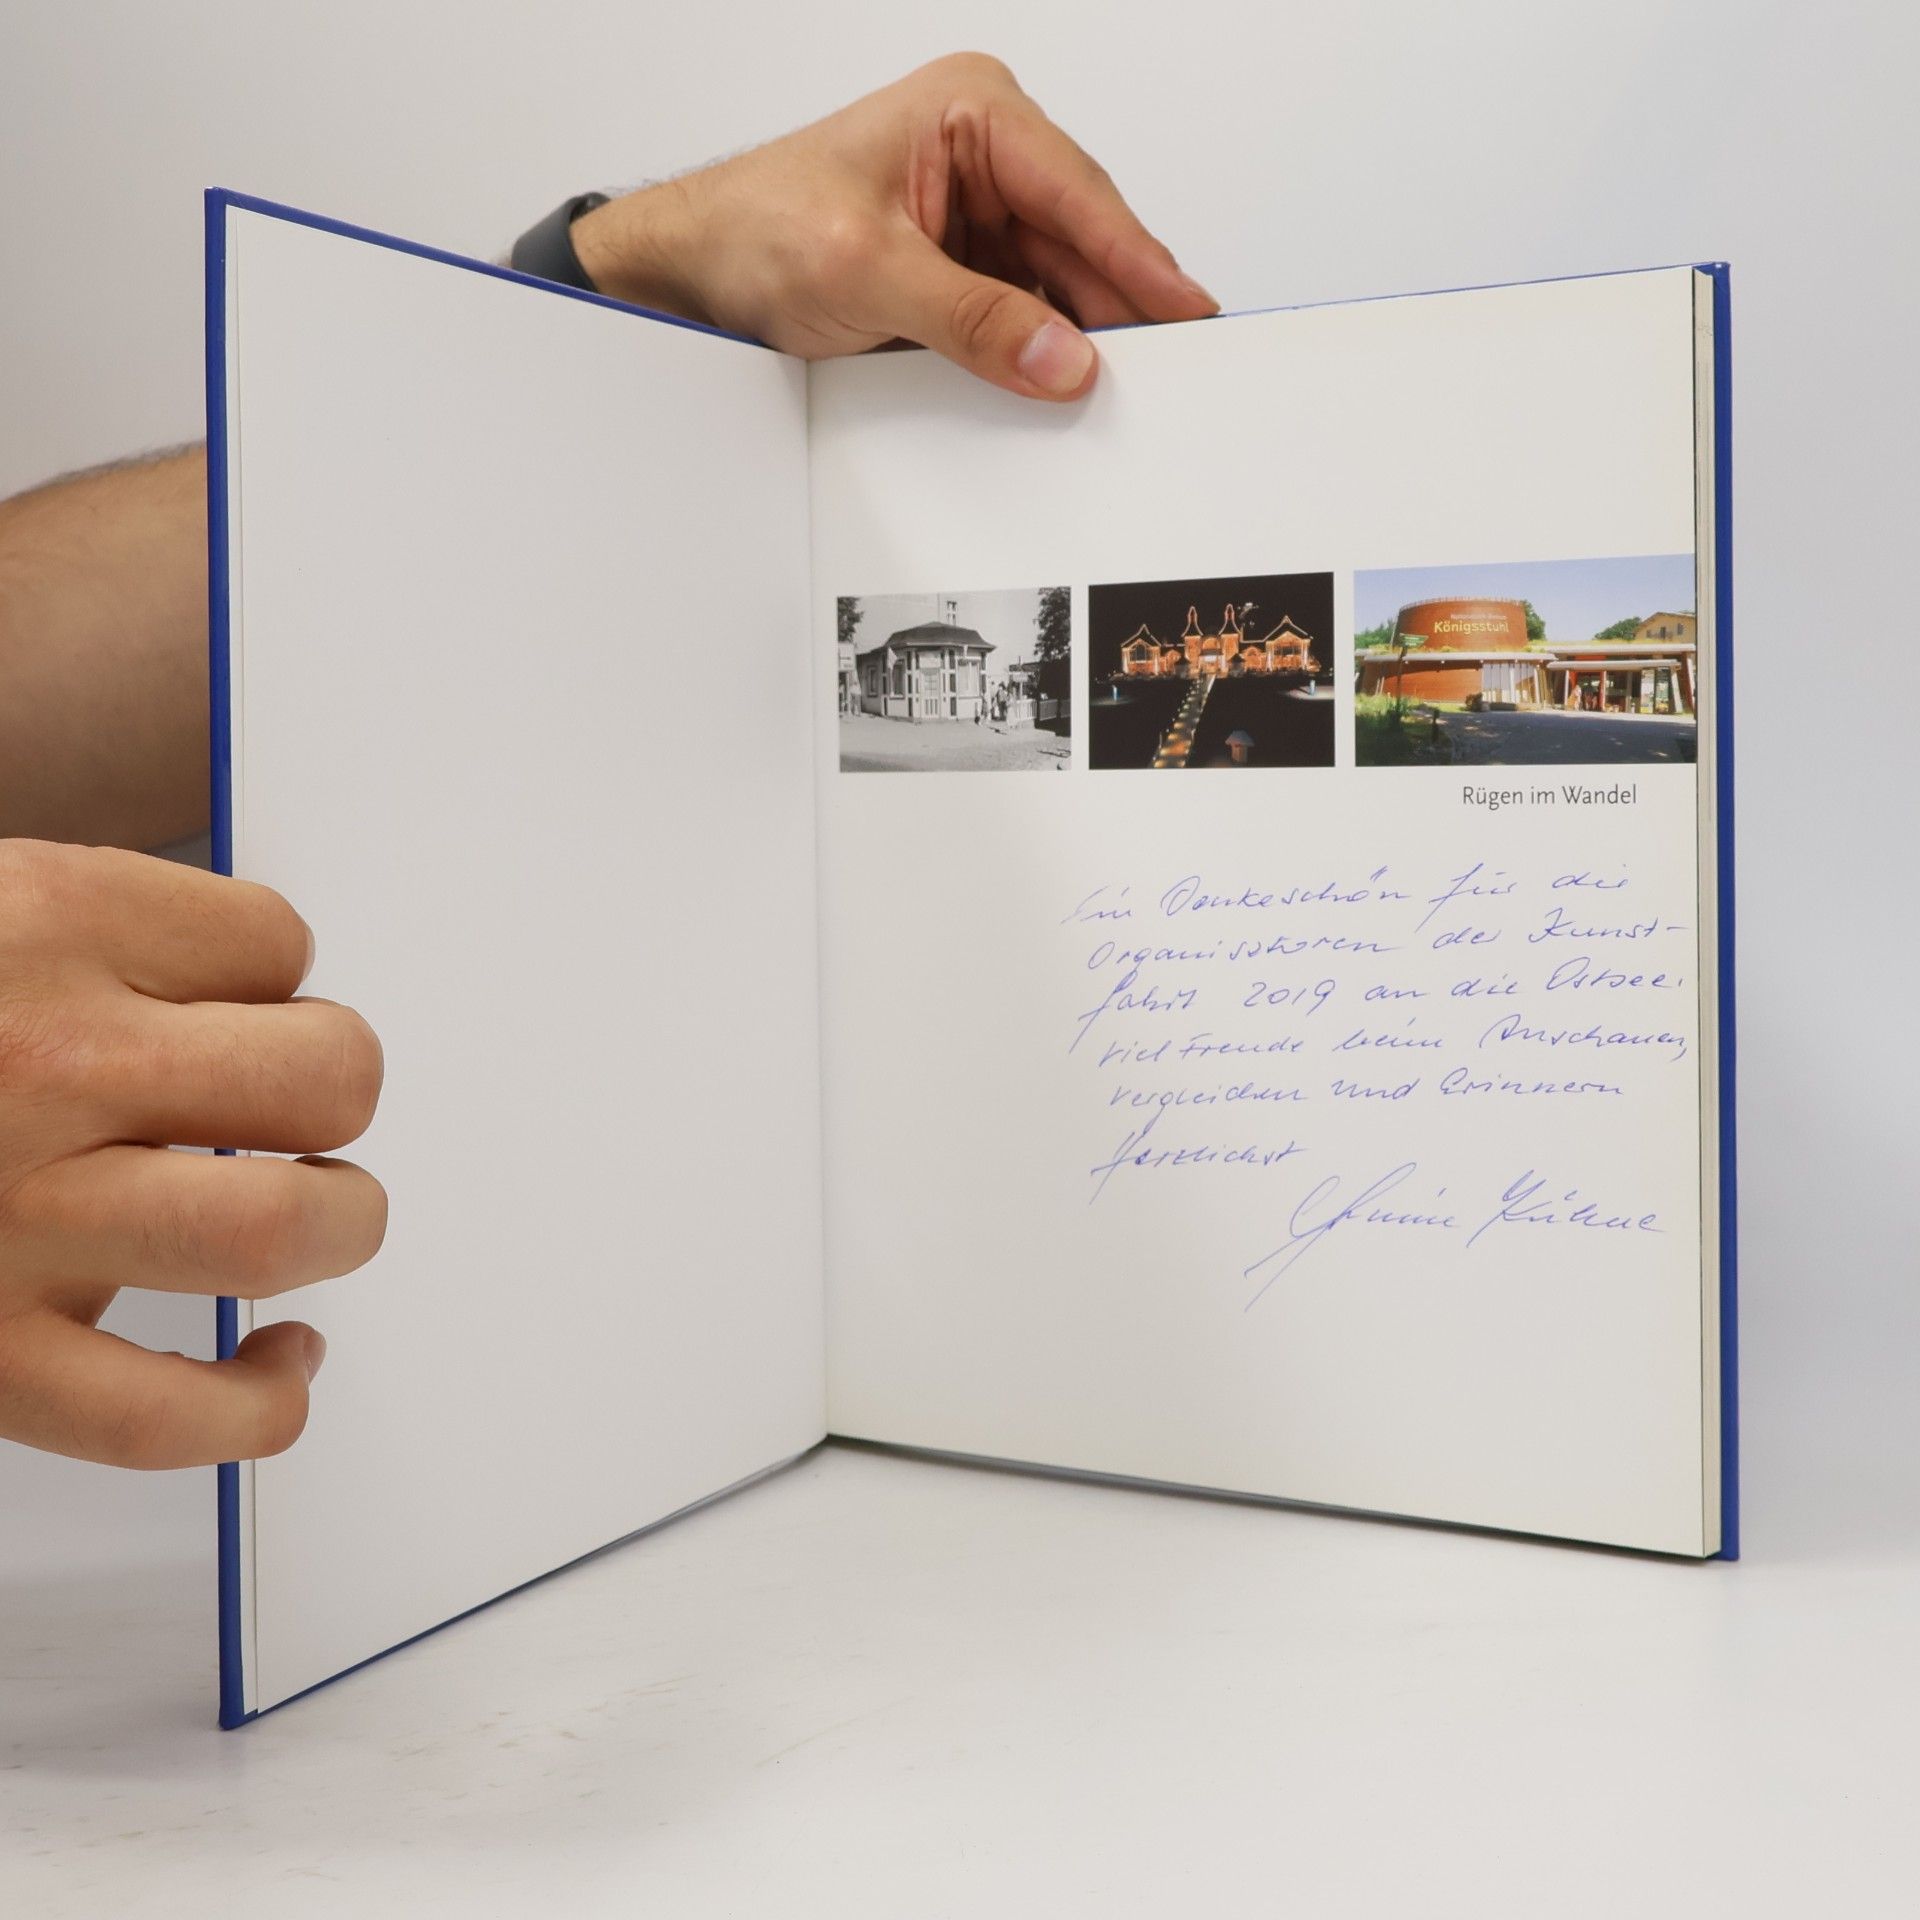 Königsstuhl
Rügen im Wandel
Ein Dankeschön für die
Organisatoren der Kunst-
fahrt 2019 an die Ostsee.
Viel Freude beim Anschauen,
Vergleichen und Erinnern
Herzlichst
Kühne